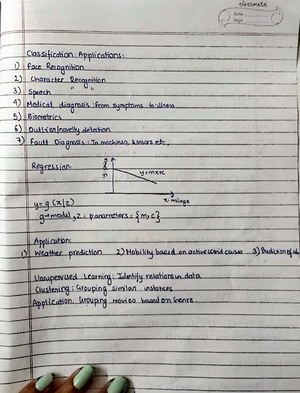 classmate
Date
Page
Classification: Applications:
1) Face Recognition
2) Character Recognition
3) Speech " "
4) Medical diagnosis: From symptoms to illness
5) Biometrics
6) Outlier/novelty detection
7) Fault Diagnosis: In machines, sensors etc.
Regression
y=mx+c
x-milage
y=g(x|z)
g→model, z: parameters = {m,c}
Application:
1) Weather prediction 2) Mobility based on active covid cases 3) Prediction of
Unsupervised Learning: Identify relations in data
Clustering: Grouping similar instances
Application: Grouping movies based on Genre.